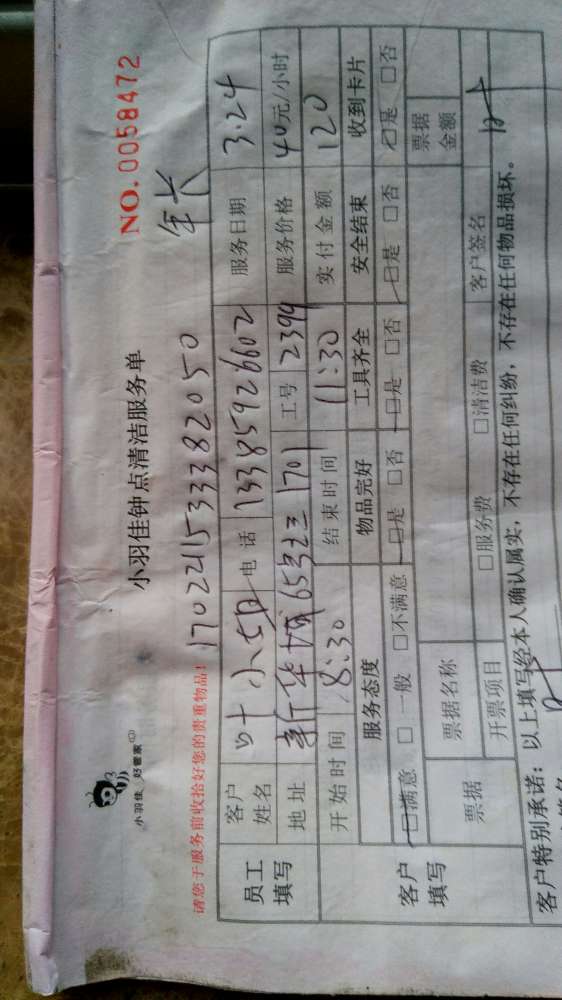 小羽佳 好管家
小羽佳钟点清洁服务单
NO.0058472
请您于服务前收拾好您的贵重物品！
17022115333382050
年长
员工填写
客户姓名 叶小姐 电话 13385926602 服务日期 3.24
地址 新华城65号之三1701 工号 2394 服务价格 40元/小时
开始时间 8:30 结束时间 11:30 实付金额 120
客户填写
服务态度 物品完好 工具齐全 安全结束 收到卡片
□满意 □一般 □不满意 □是 □否 □是 □否 □是 □否 □是 □否
票据 票据名称 票据金额
开票项目 □服务费 □清洁费 客户签名
客户特别承诺：以上填写经本人确认属实，不存在任何纠纷，不存在任何物品损坏。